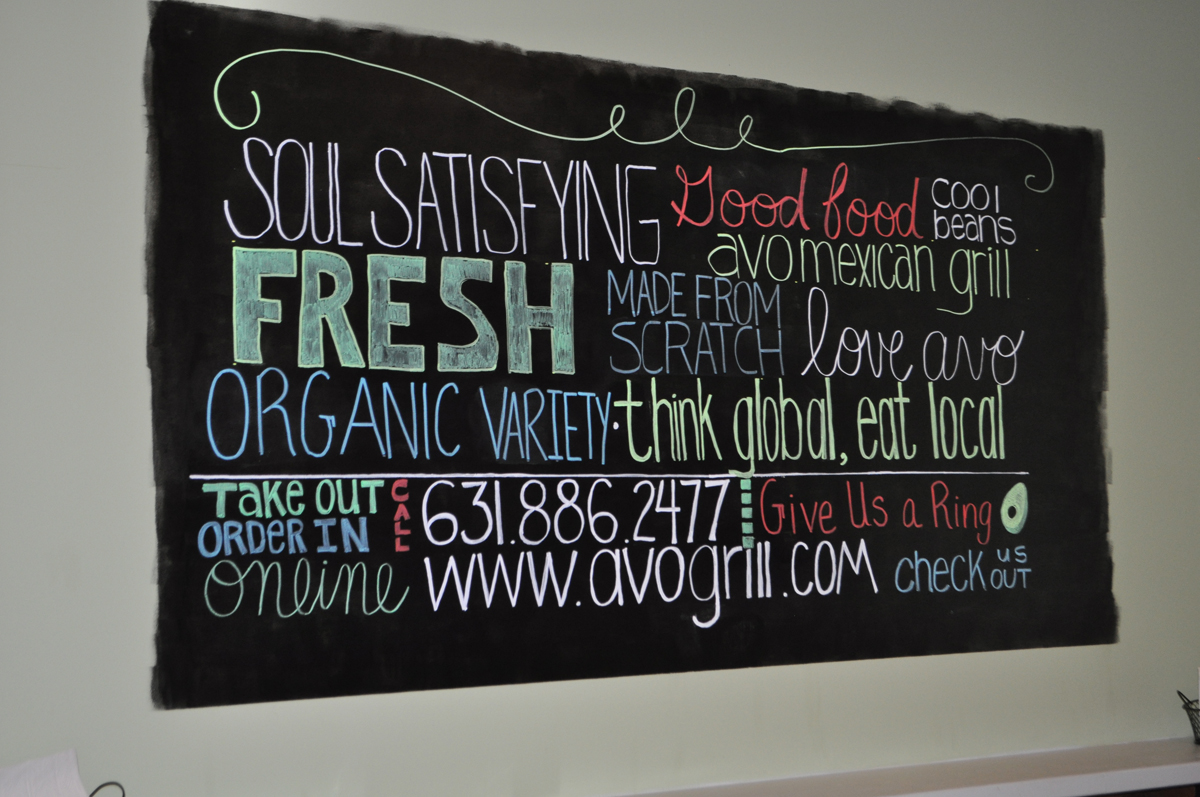 SOUL SATISFYING Good food cool beans
avo mexican grill
FRESH MADE FROM SCRATCH love avo
ORGANIC VARIETY · think global, eat local
TAKE OUT CALL 631.886.2477 Give Us a Ring
ORDER IN
online www.avogrill.com check us out